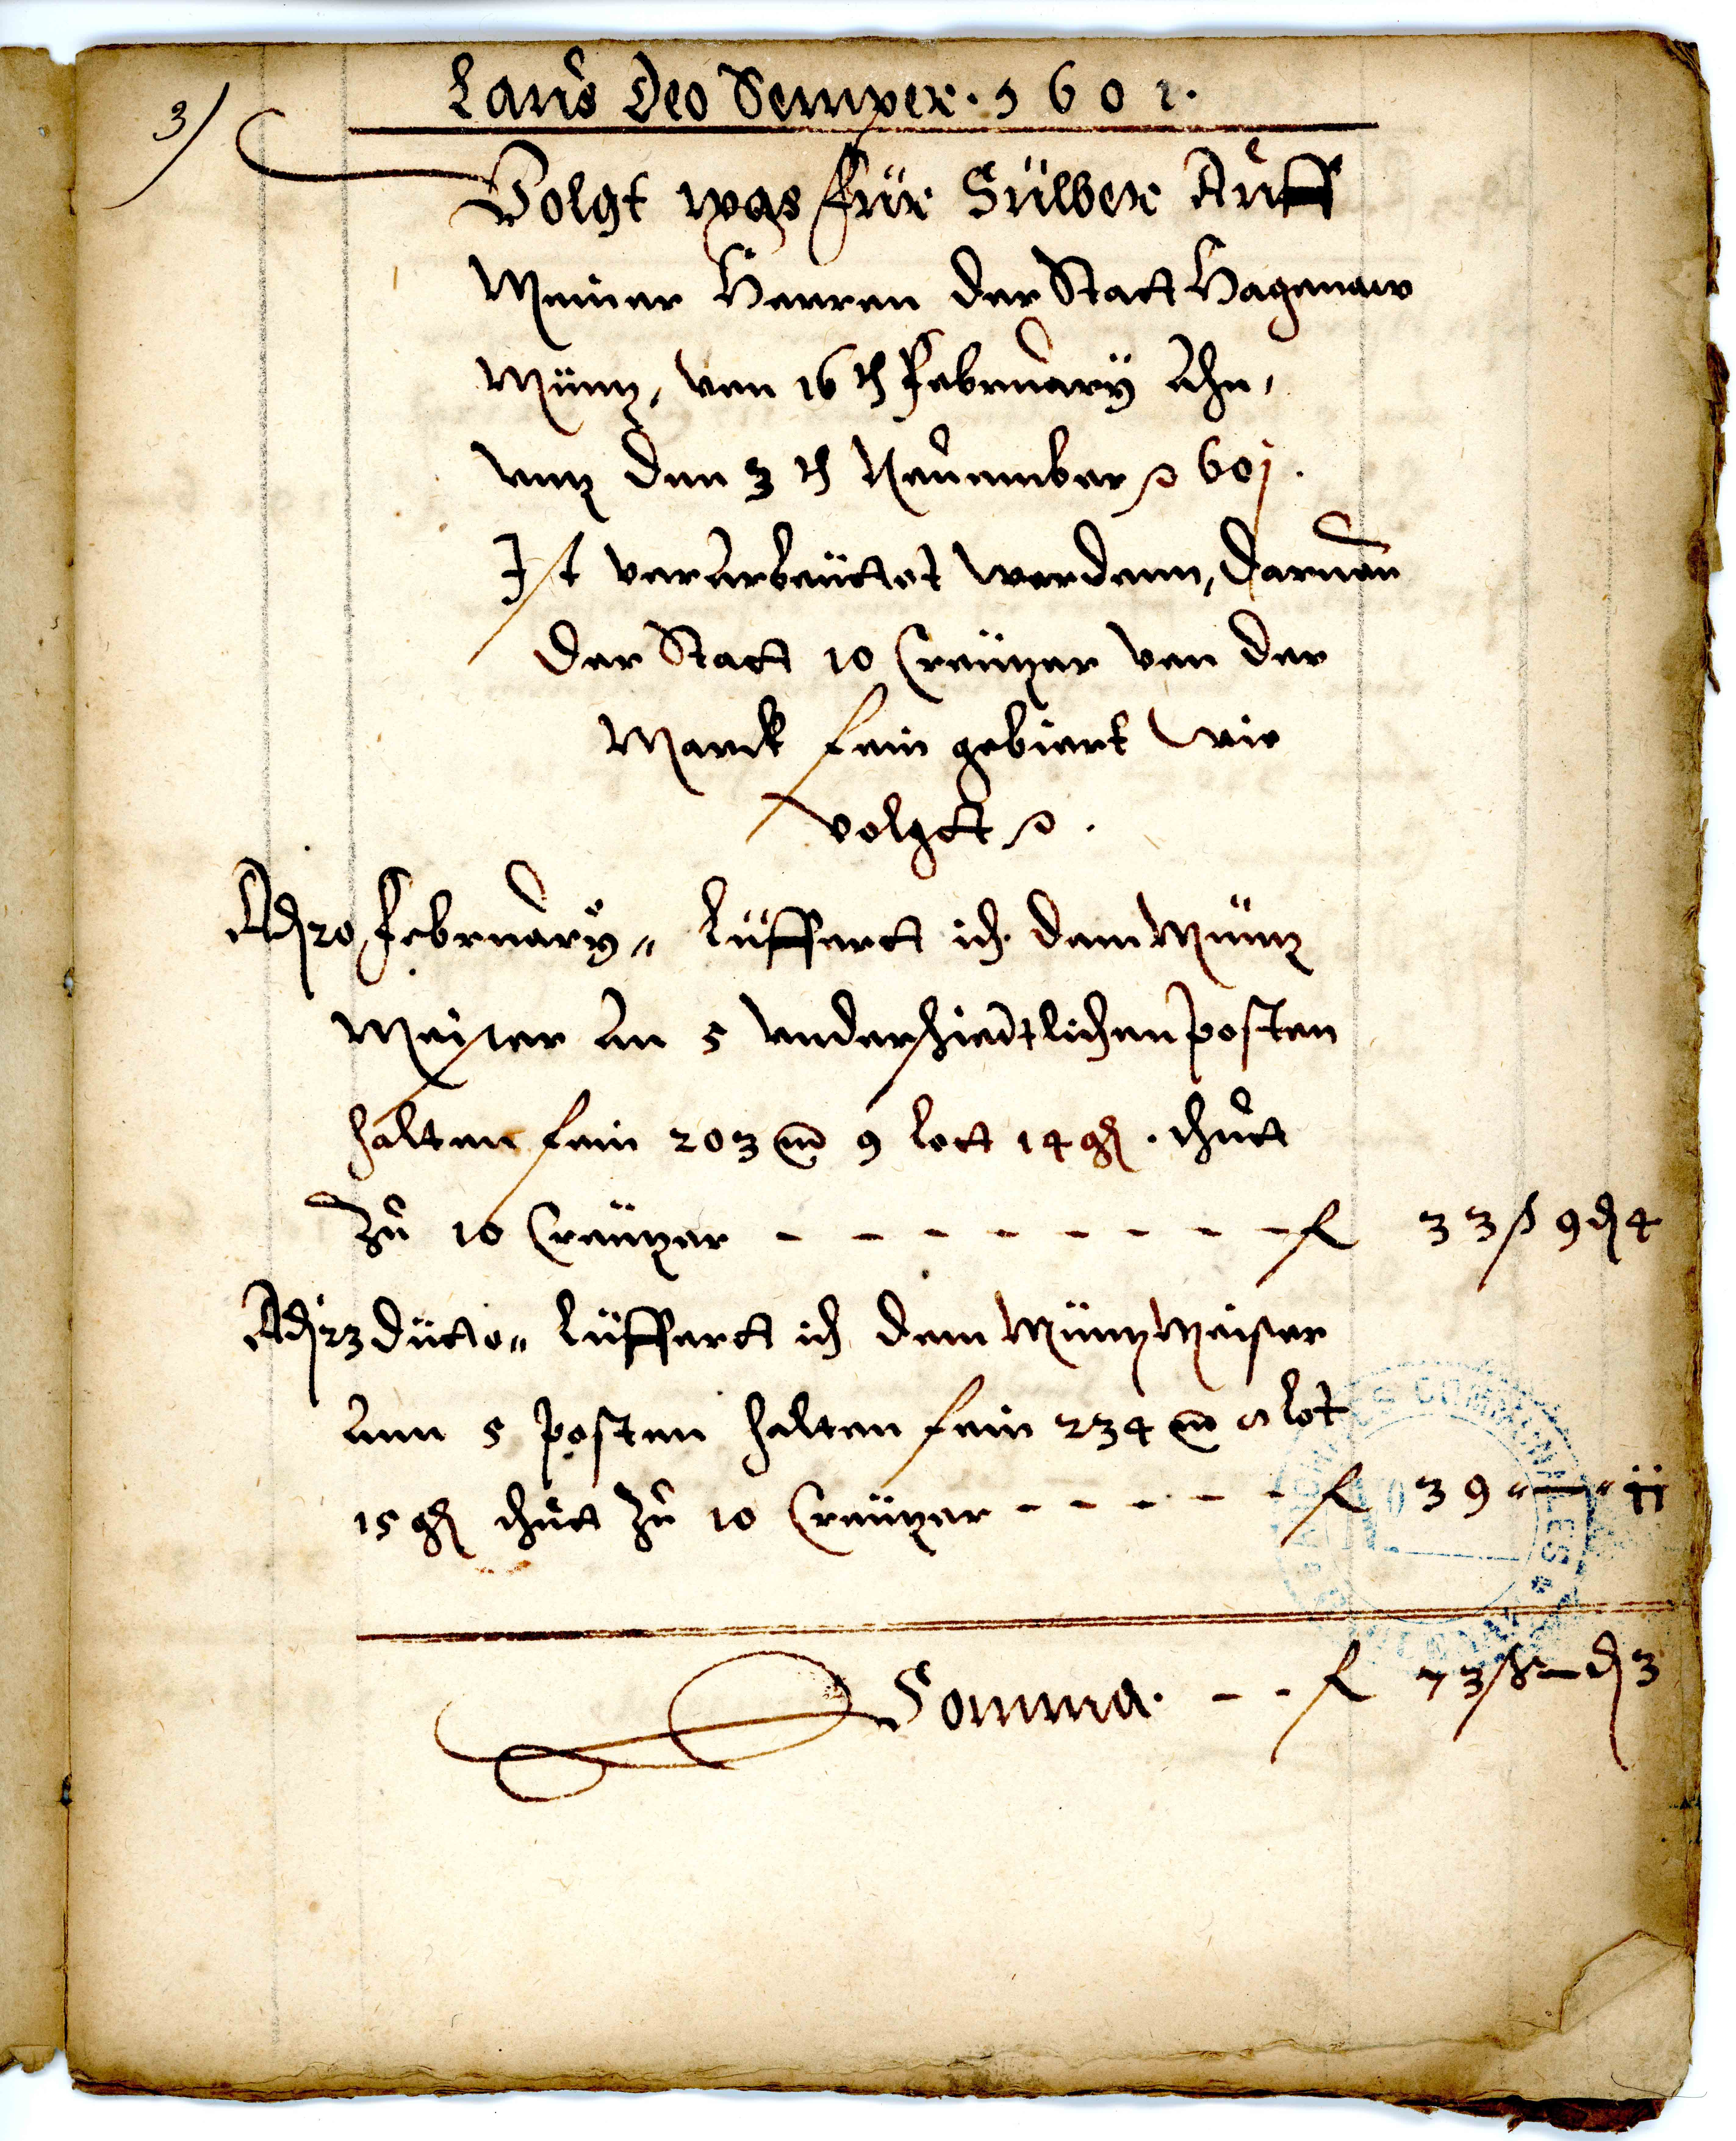 3)
Laus Deo Semper · 1601 ·
Volgt was für Sülber Auff
Meiner Herren der Statt Hagenaw
Müntz, von 16 th February Ahn,
untz den 3 th November 601.
Ist verarbeüttet worden, darvon
der Statt 10 Creützer von der
Marck fein gebiert wie
volgtt.
Adj 20 February „ lüffertt ich dem Müntz
Meister An 5 Underschiedtlichen posten
halten fein 203 m 9 lott 14 g . thutt
Zu 10 Creützer - - - - - - - - fl 33 ß 9 d 4
Adj 23 dütto „ lüffertt ich dem Müntz Meister
Ann 5 posten halten fein 234 m lot
15 g thutt Zu 10 Creützer - - - - - fl 39 „ — „ ij
Somma · - - fl 73 ß — d 3
ARCHIVES COMMUNALES